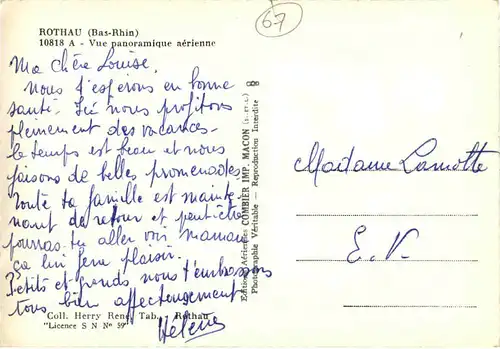 67
ROTHAU (Bas-Rhin)
10818 A - Vue panoramique aérienne
Ma chère Louise,
Nous t'espérons en bonne
santé. Ici nous profitons
pleinement des vacances -
le temps est beau et nous
faisons de belles promenades.
Toute ta famille est mainte-
nant de retour et peut-être
pourras-tu aller voir maman
ça lui fera plaisir.
Petits et grands nous t'embrassons
tous bien affectueusement
Hélène
Coll. Herry René, Tab., Rothau
"Licence S N N° 59"
Editions Aériennes COMBIER IMP. MACON
Photographie Véritable - Reproduction Interdite
Madame Lamotte
E. V.